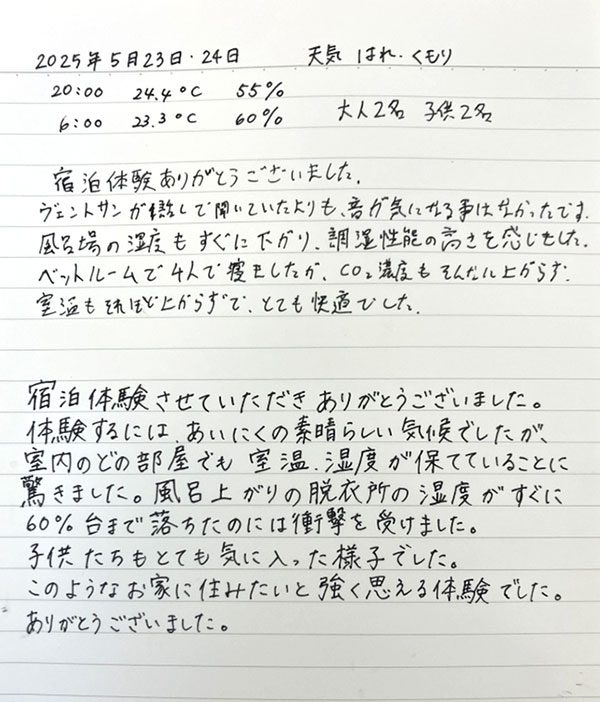 2025年5月23日・24日 天気 はれ・くもり
20:00 24.4℃ 55%
6:00 23.3℃ 60% 大人2名 子供2名
宿泊体験ありがとうございました。
ヴェントサンが 話しで聞いていたよりも、音が気になる事はなかったです.
風呂場の湿度もすぐに下がり、調湿性能の高さを感じました.
ベットルームで4人で寝ましたが、CO₂濃度もそんなに上がらず.
室温もそれほど上がらずで、とても快適でした.
宿泊体験させていただきありがとうございました。
体験するには、あいにくの素晴らしい気候でしたが、
室内のどの部屋でも室温、湿度が保てていることに
驚きました。風呂上がりの脱衣所の湿度がすぐに
60%台まで落ちたのには衝撃を受けました。
子供たちもとても気に入った様子でした。
このようなお家に住みたいと強く思える体験でした。
ありがとうございました。